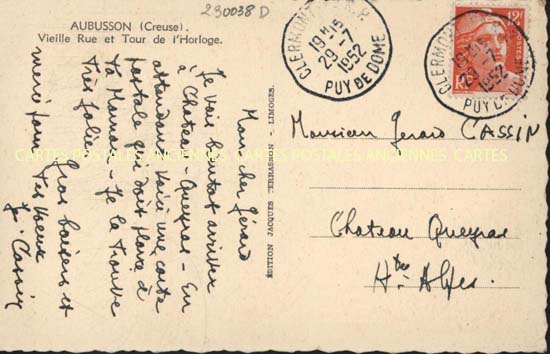 230038 D
AUBUSSON (Creuse).
Vieille Rue et Tour de l'Horloge.
Mon cher Gérard
Je vais bientot arriver
à Chateau-Queyras - En
attendant voici une carte
postale qui doit plaire à
ta Maman - Je la trouve
très jolie
Gros baisers et
merci pour tes voeux
Cassin
ÉDITION JACQUES TERRASSON - LIMOGES.
CLERMONT
19H45
29-7
1952
PUY DE DOME
CLERMONT
19H45
29-7
1952
PUY DE DOME
12F
POSTES
RF
Monsieur Gérard CASSIN
Chateau Queyras
Htes Alpes.
CARTES POSTALES ANCIENNES CARTES